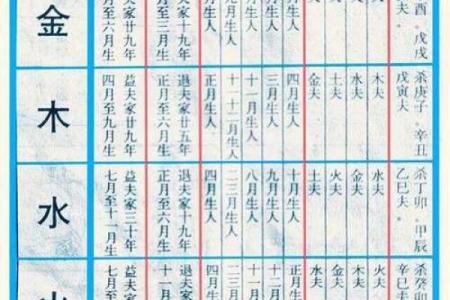 金
夫家廿九年
月至六月生
夫家十九年
月至三月生
月生人
月生人
月生人
月生人
月生人
夫
夫
夫
夫
酉。戊戌
夫。
木
益夫家廿九年
四月至九月生
退夫家廿五年
正月至六月生
正月生人
十一十二月生人
十一月生人
三月生人
四月生人
金夫
土夫
水夫
木夫
杀庚子。辛丑
戊寅夫。
水
益夫家三十年
七月至十一月生
退夫家十九年
正月至六月生
四月生人
二三月生人
八月生人
九月生人
十月生人
木夫
火夫
金夫
水夫
杀丁卯。甲辰
乙巳夫。
火
益夫家
七月至
退夫家
十一月
四月生
二三月
十二月
十一月
十月生
水夫
金夫
木夫
火夫
杀癸卯
辛巳